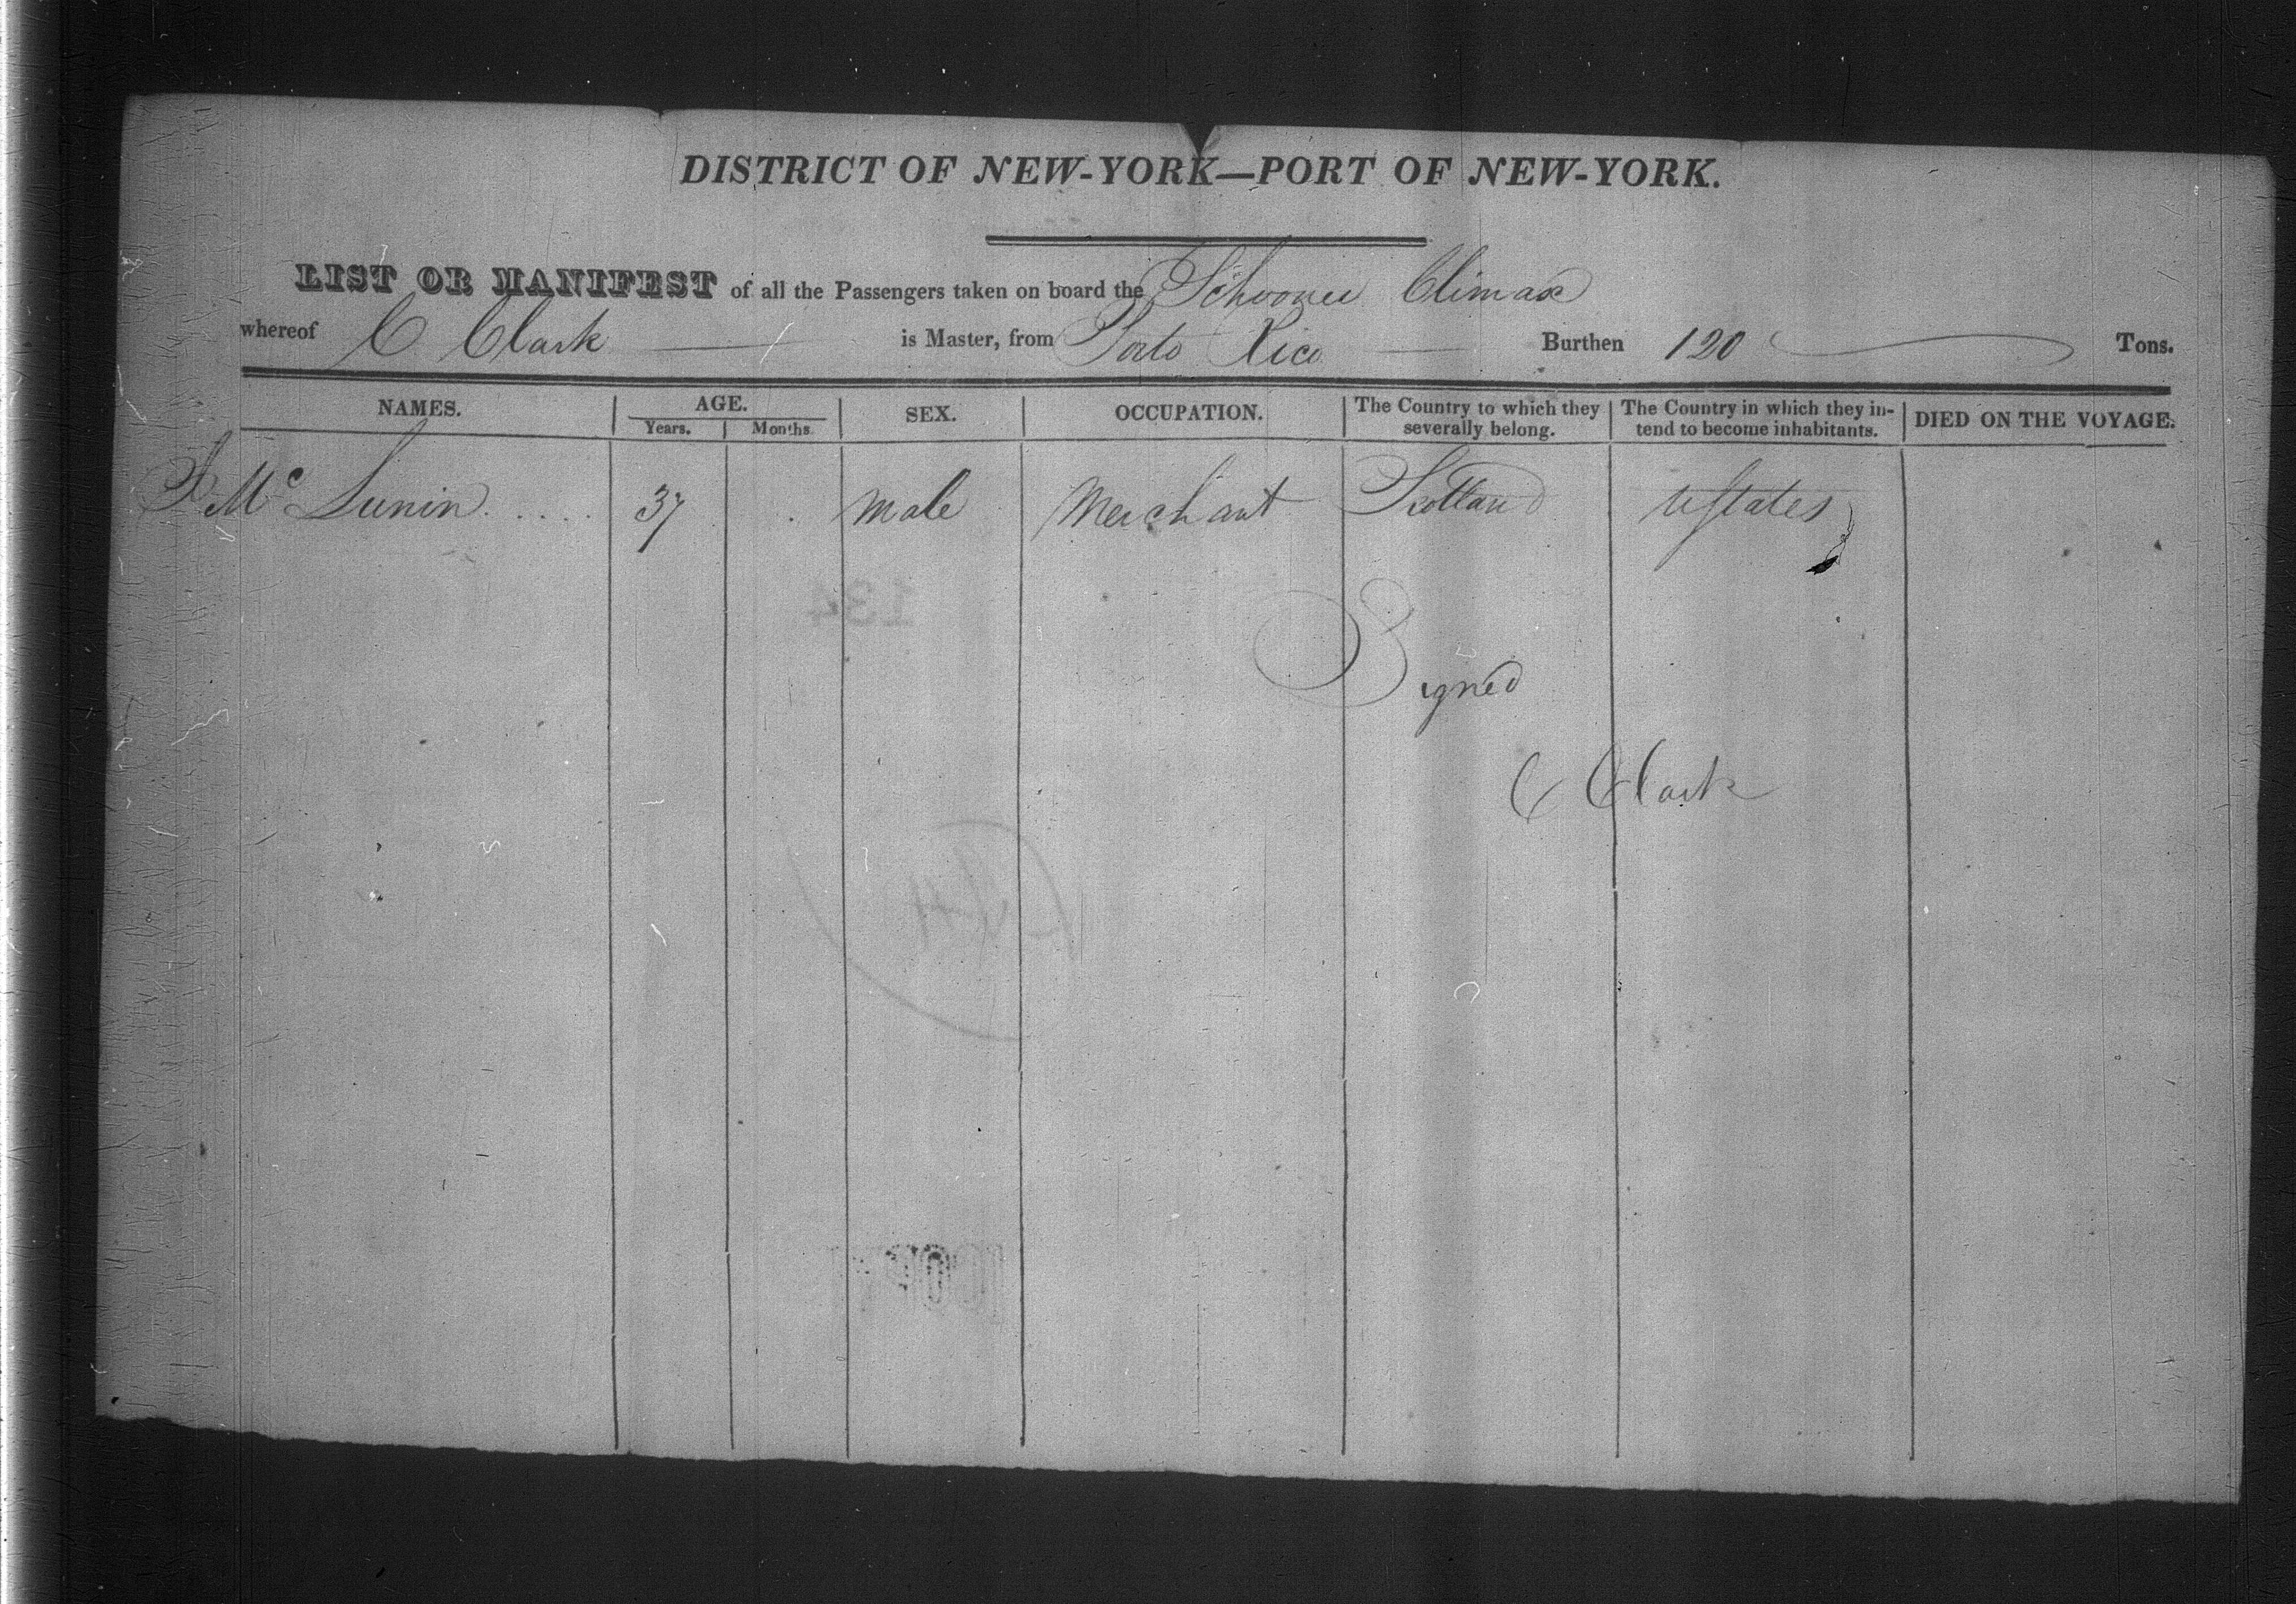 DISTRICT OF NEW-YORK—PORT OF NEW-YORK.
LIST OR MANIFEST of all the Passengers taken on board the Schooner Climax
whereof C Clark is Master, from Porto Rico Burthen 120 Tons.
NAMES. AGE. SEX. OCCUPATION. The Country to which they severally belong. The Country in which they in- tend to become inhabitants. DIED ON THE VOYAGE.
Years. Months.
Mc Lunin 37 male Merchant Scotland UStates
134
Signed
C Clark